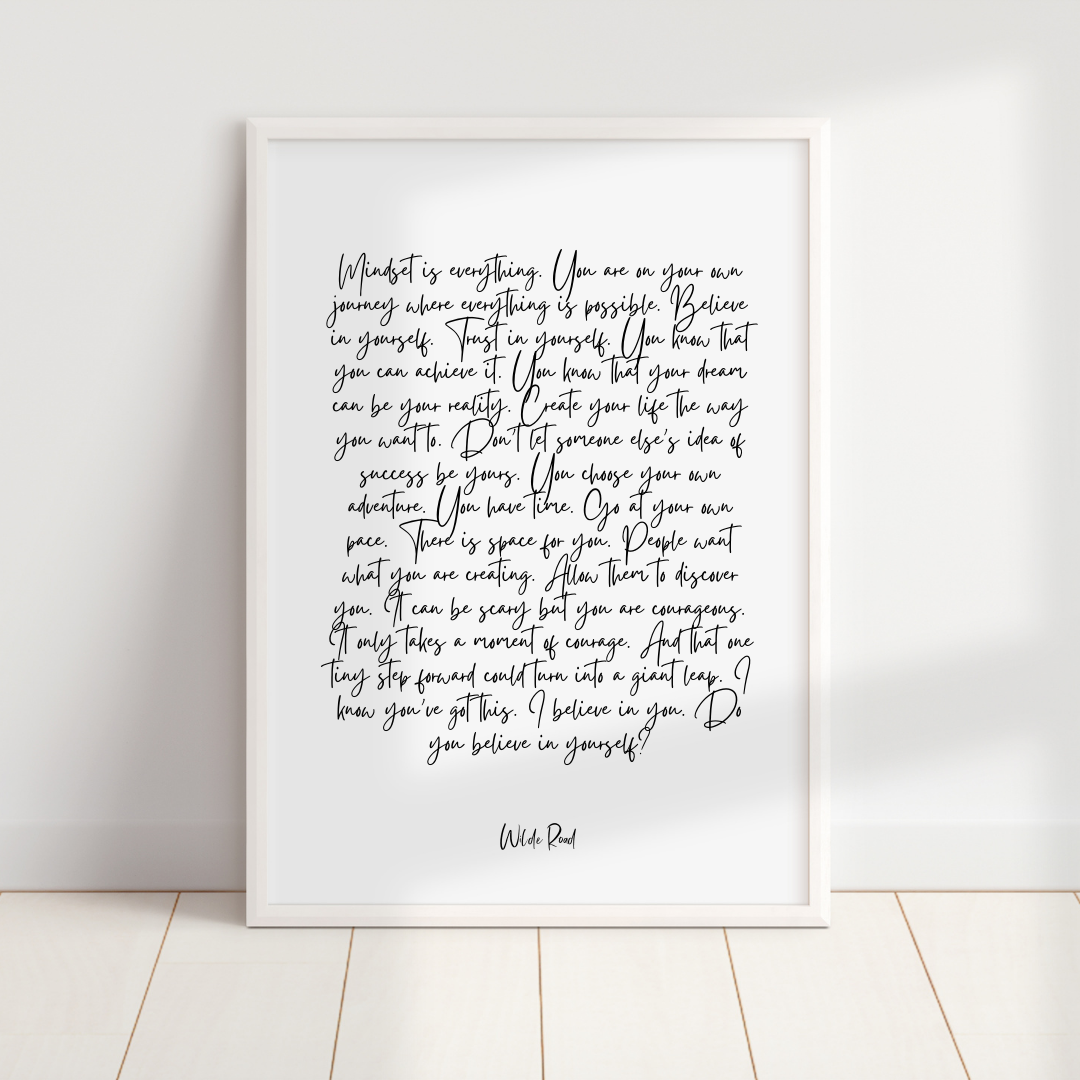 Mindset is everything. You are on your own
journey where everything is possible. Believe
in yourself. Trust in yourself. You know that
you can achieve it. You know that your dream
can be your reality. Create your life the way
you want to. Don't let someone else's idea of
success be yours. You choose your own
adventure. You have time. Go at your own
pace. There is space for you. People want
what you are creating. Allow them to discover
you. It can be scary but you are courageous.
It only takes a moment of courage. And that one
tiny step forward could turn into a giant leap. I
know you've got this. I believe in you. Do
you believe in yourself?
Wilde Road